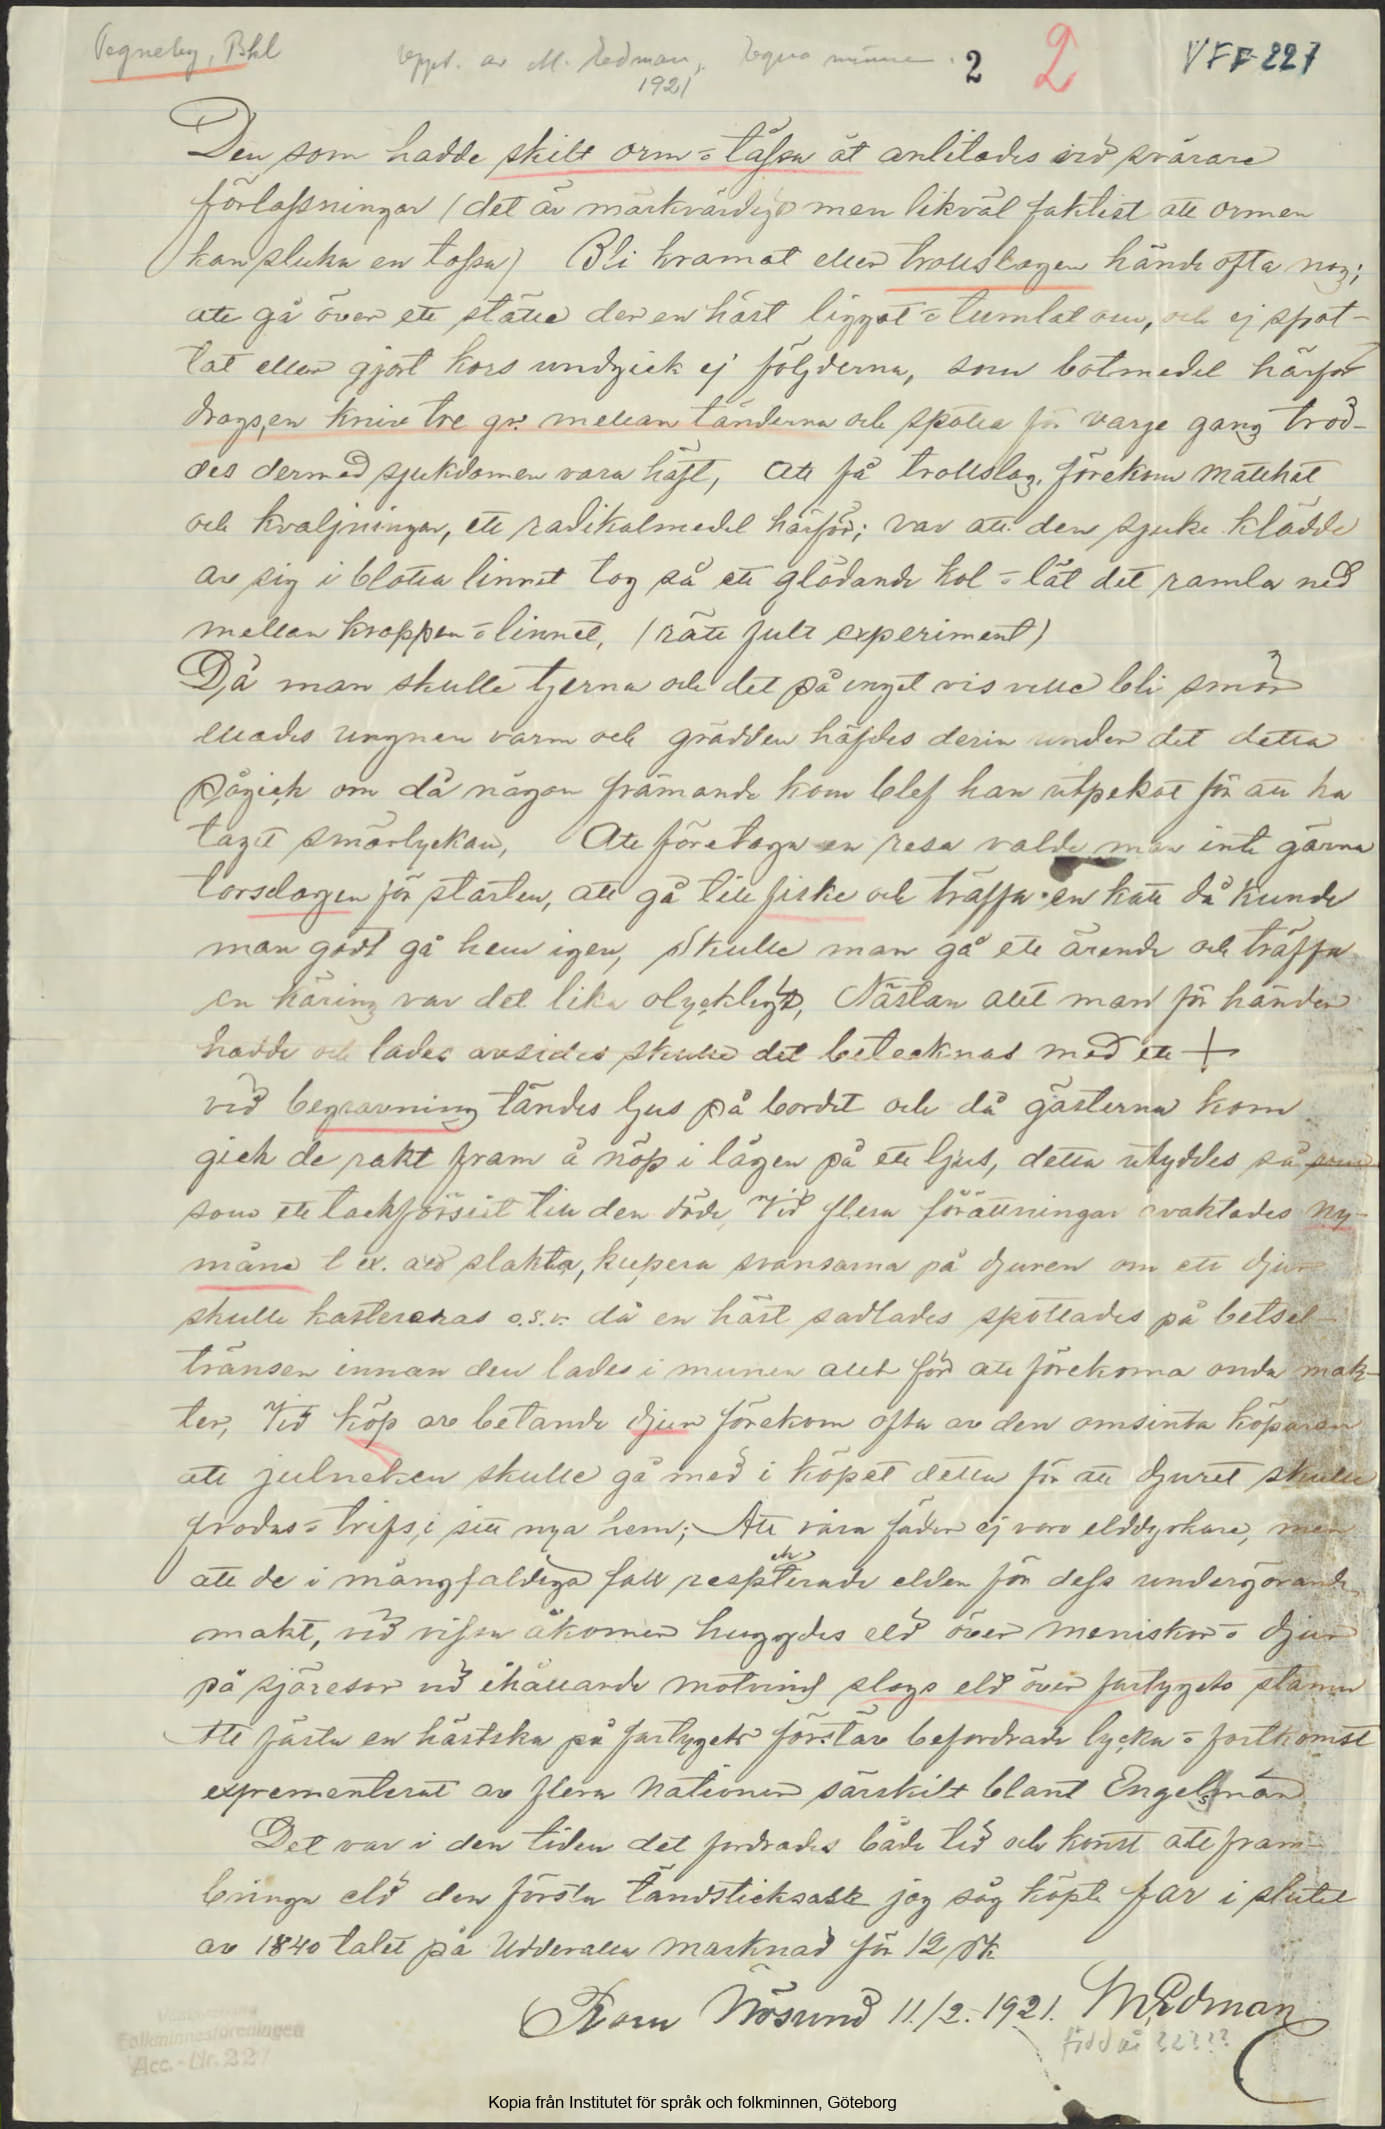 Tegneby, Bhl
Uppt. av M. Edman, Egna minnen. 2 2 VFF 227
1921
Den som hadde skilt orm = tåssa åt anlitades vid svårare
förlossningar (det är märkvärdigt men likväl faktist att ormen
kan sluka en tossa) Bli kramat eller trollslagen hände ofta nog;
att gå över ett ställe der en häst liggat = tumlat om, och ej spot-
tat eller gjort kors undgick ej följderna, som botmedel härför
drogs, en kniv tre gr. mellan tänderna och spotta för varje gang trod-
des dermed sjukdomen vara häft, att få trollslag, förekom matthet
och kväljningar, ett radikalmedel härför; var att den sjuke klädde
av sig i blotta linnet tog så ett glödande kol = lät det ramla ned
mellan kroppen = linnet, (rätt fult experiment)
Då man skulle tjerna och det på inget vis ville bli smör
ellades ungnen varm och grädden häfdes derin under det detta
pågick om då någon främande kom blef han utpekat för att ha
tagit smörlyckan, Att företaga en resa valde man inte gärna
torsdagen för starten, att gå till fiske och träffa en katt då kunde
man godt gå hem igen, skulle man gå ett ärende och träffa
en käring var det lika olyckligt, Nästan allt man för händer
hadde och lades avsides skulle det betecknas med ett +
vid begravning tändes ljus på bordet och då gästerna kom
gick de rakt fram å nöp i lågen på ett ljus, detta utyddes så
som ett tackförsist till den döde, Vid flera förättningar vaktades ny-
måne t ex. att slakta, kupera svansarna på djuren om ett djur
skulle kastereras o.s.v. då en häst sadlades spottades på betsel-
tränsen innan den lades i munen allt för att förekoma onda mak-
ter, Vid köp av betande djur förekom ofta av den omsinta köparen
att julneken skulle gå med i köpet detta för att djuret skulle
frodas = trifs, i sitt nya hem; Att våra fäder ej voro elddyrkare, men
att de i mångfaldiga fall respekterade elden för dess undergörande
makt, vid vissa åkomer huggdes eld över meniskor = djur
på sjöresor vid ihållande motvind slogs eld över fartygets stamn
Att fästa en hästsko på fartygets förstäv befordrade lycka = fortkomst
exprementerat av flera Nationer särskilt blant Engelsmän
Det var i den tiden det fordrades både tid och konst att fram-
bringa eld den första tändsticksask jag såg köpte far i slutet
av 1840 talet på Uddevalla marknad för 12 sk
From Nösund 11/2. - 1921. M. Edman
född år ????
Folkminnesföreningen
Acc. - Nr. 227
Kopia från Institutet för språk och folkminnen, Göteborg